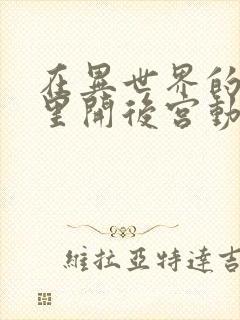 在異世界的
里開後宮動
維拉亞特達吉